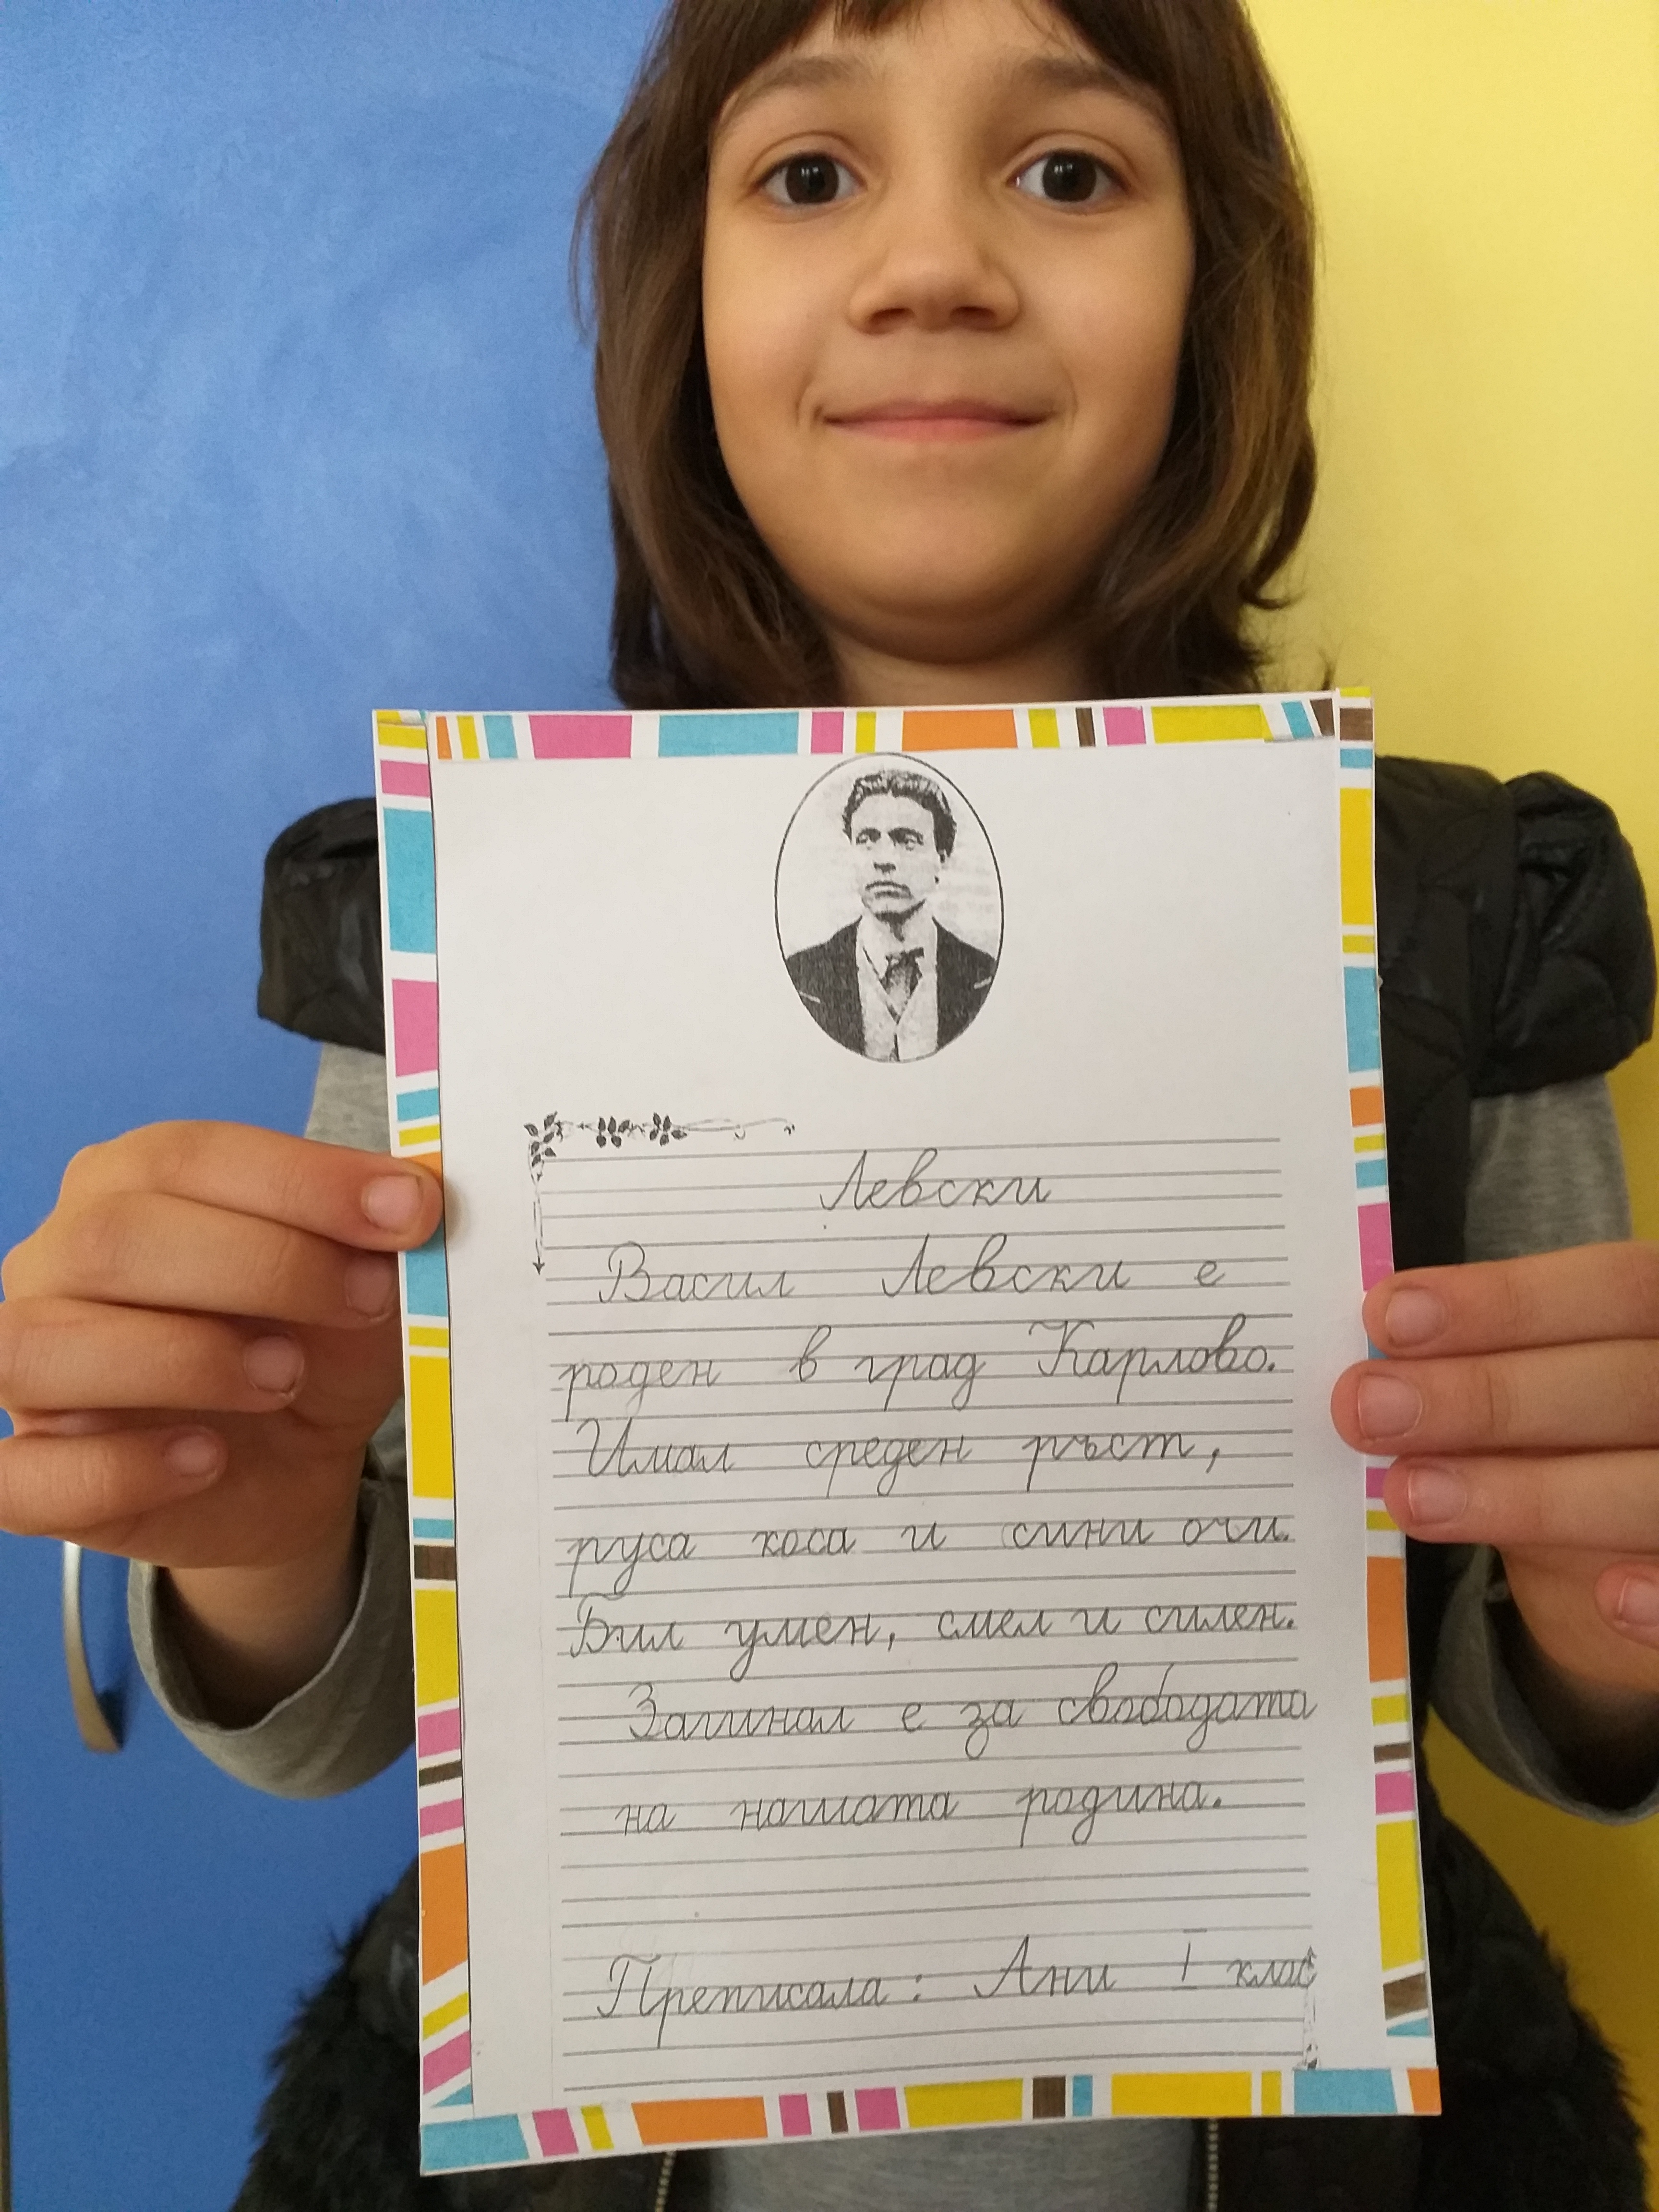 Левски
Васил Левски е
роден в град Карлово.
Имал среден ръст,
руса коса и сини очи.
Бил умен, смел и силен.
Загинал е за свободата
на нашата родина.
Преписала: Ани I клас